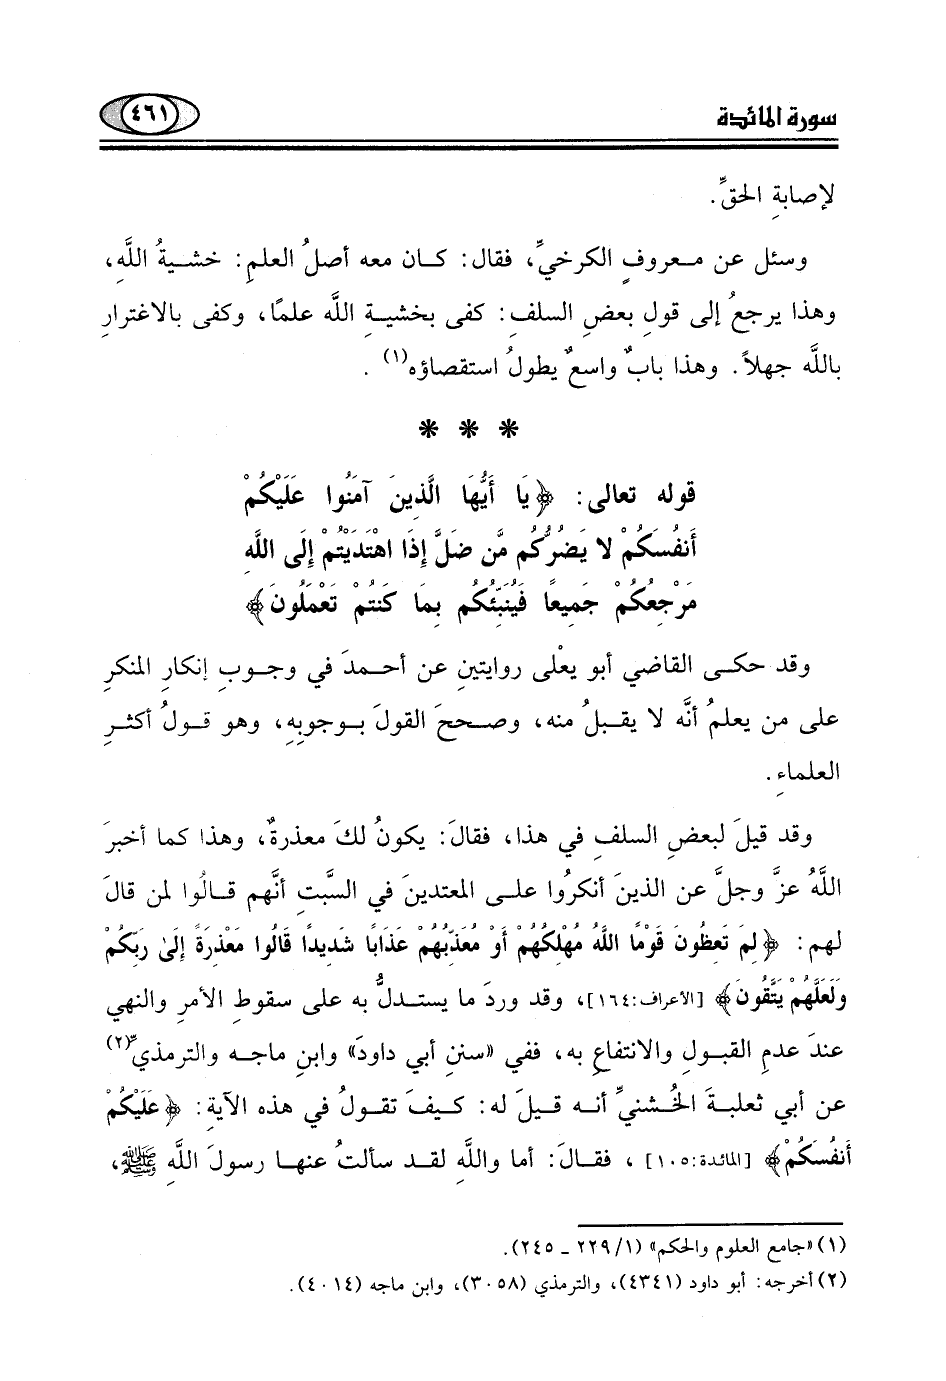 سورة المائدة ٤٦١
لإصابةِ الحقِّ.
وسئل عن معروفٍ الكرخيِّ، فقال: كان معه أصلُ العلمِ: خشيةُ اللَّهِ،
وهذا يرجعُ إلى قولِ بعضِ السلفِ: كفى بخشيةِ اللَّه علمًا، وكفى بالاغترارِ
باللَّه جهلاً. وهذا بابٌ واسعٌ يطولُ استقصاؤه(١) .
* * *
قوله تعالى: ﴿يَا أَيُّهَا الَّذِينَ آمَنُوا عَلَيْكُمْ
أَنفُسَكُمْ لا يَضُرُّكُم مَّن ضَلَّ إِذَا اهْتَدَيْتُمْ إِلَى اللَّهِ
مَرْجِعُكُمْ جَمِيعًا فَيُنَبِّئُكُم بِمَا كُنتُمْ تَعْمَلُونَ﴾
وقد حكى القاضي أبو يعْلى روايتينِ عن أحمدَ في وجوبِ إنكارِ المنكرِ
على من يعلمُ أنَّه لا يقبلُ منه، وصححَ القولَ بوجوبِهِ، وهو قولُ أكثرِ
العلماءِ.
وقد قيلَ لبعضِ السلفِ في هذا، فقالَ: يكونُ لكَ معذرةٌ، وهذا كما أخبرَ
اللَّهُ عزَّ وجلَّ عن الذينَ أنكرُوا على المعتدينَ في السَّبتِ أنَّهم قالُوا لمن قالَ
لهم: ﴿لِمَ تَعِظُونَ قَوْمًا اللَّهُ مُهْلِكُهُمْ أَوْ مُعَذِّبُهُمْ عَذَابًا شَدِيدًا قَالُوا مَعْذِرَةً إِلَىٰ رَبِّكُمْ
وَلَعَلَّهُمْ يَتَّقُونَ﴾ [الأعراف:١٦٤]، وقد وردَ ما يستدلُّ به على سقوطِ الأمرِ والنهي
عندَ عدمِ القبولِ والانتفاعِ به، ففي «سننِ أبي داودَ» وابنِ ماجه والترمذيِّ(٢)
عن أبي ثعلبةَ الخُشنيِّ أنه قيلَ له: كيفَ تقولُ في هذه الآية: ﴿عَلَيْكُمْ
أَنفُسَكُمْ﴾ [المائدة:١٠٥] ، فقالَ: أما واللَّهِ لقد سألتُ عنها رسولَ اللَّهِ ﷺ،
(١) «جامع العلوم والحكم» (١/ ٢٢٩ ـ ٢٤٥).
(٢) أخرجه: أبو داود (٤٣٤١)، والترمذي (٣٠٥٨)، وابن ماجه (٤٠١٤).